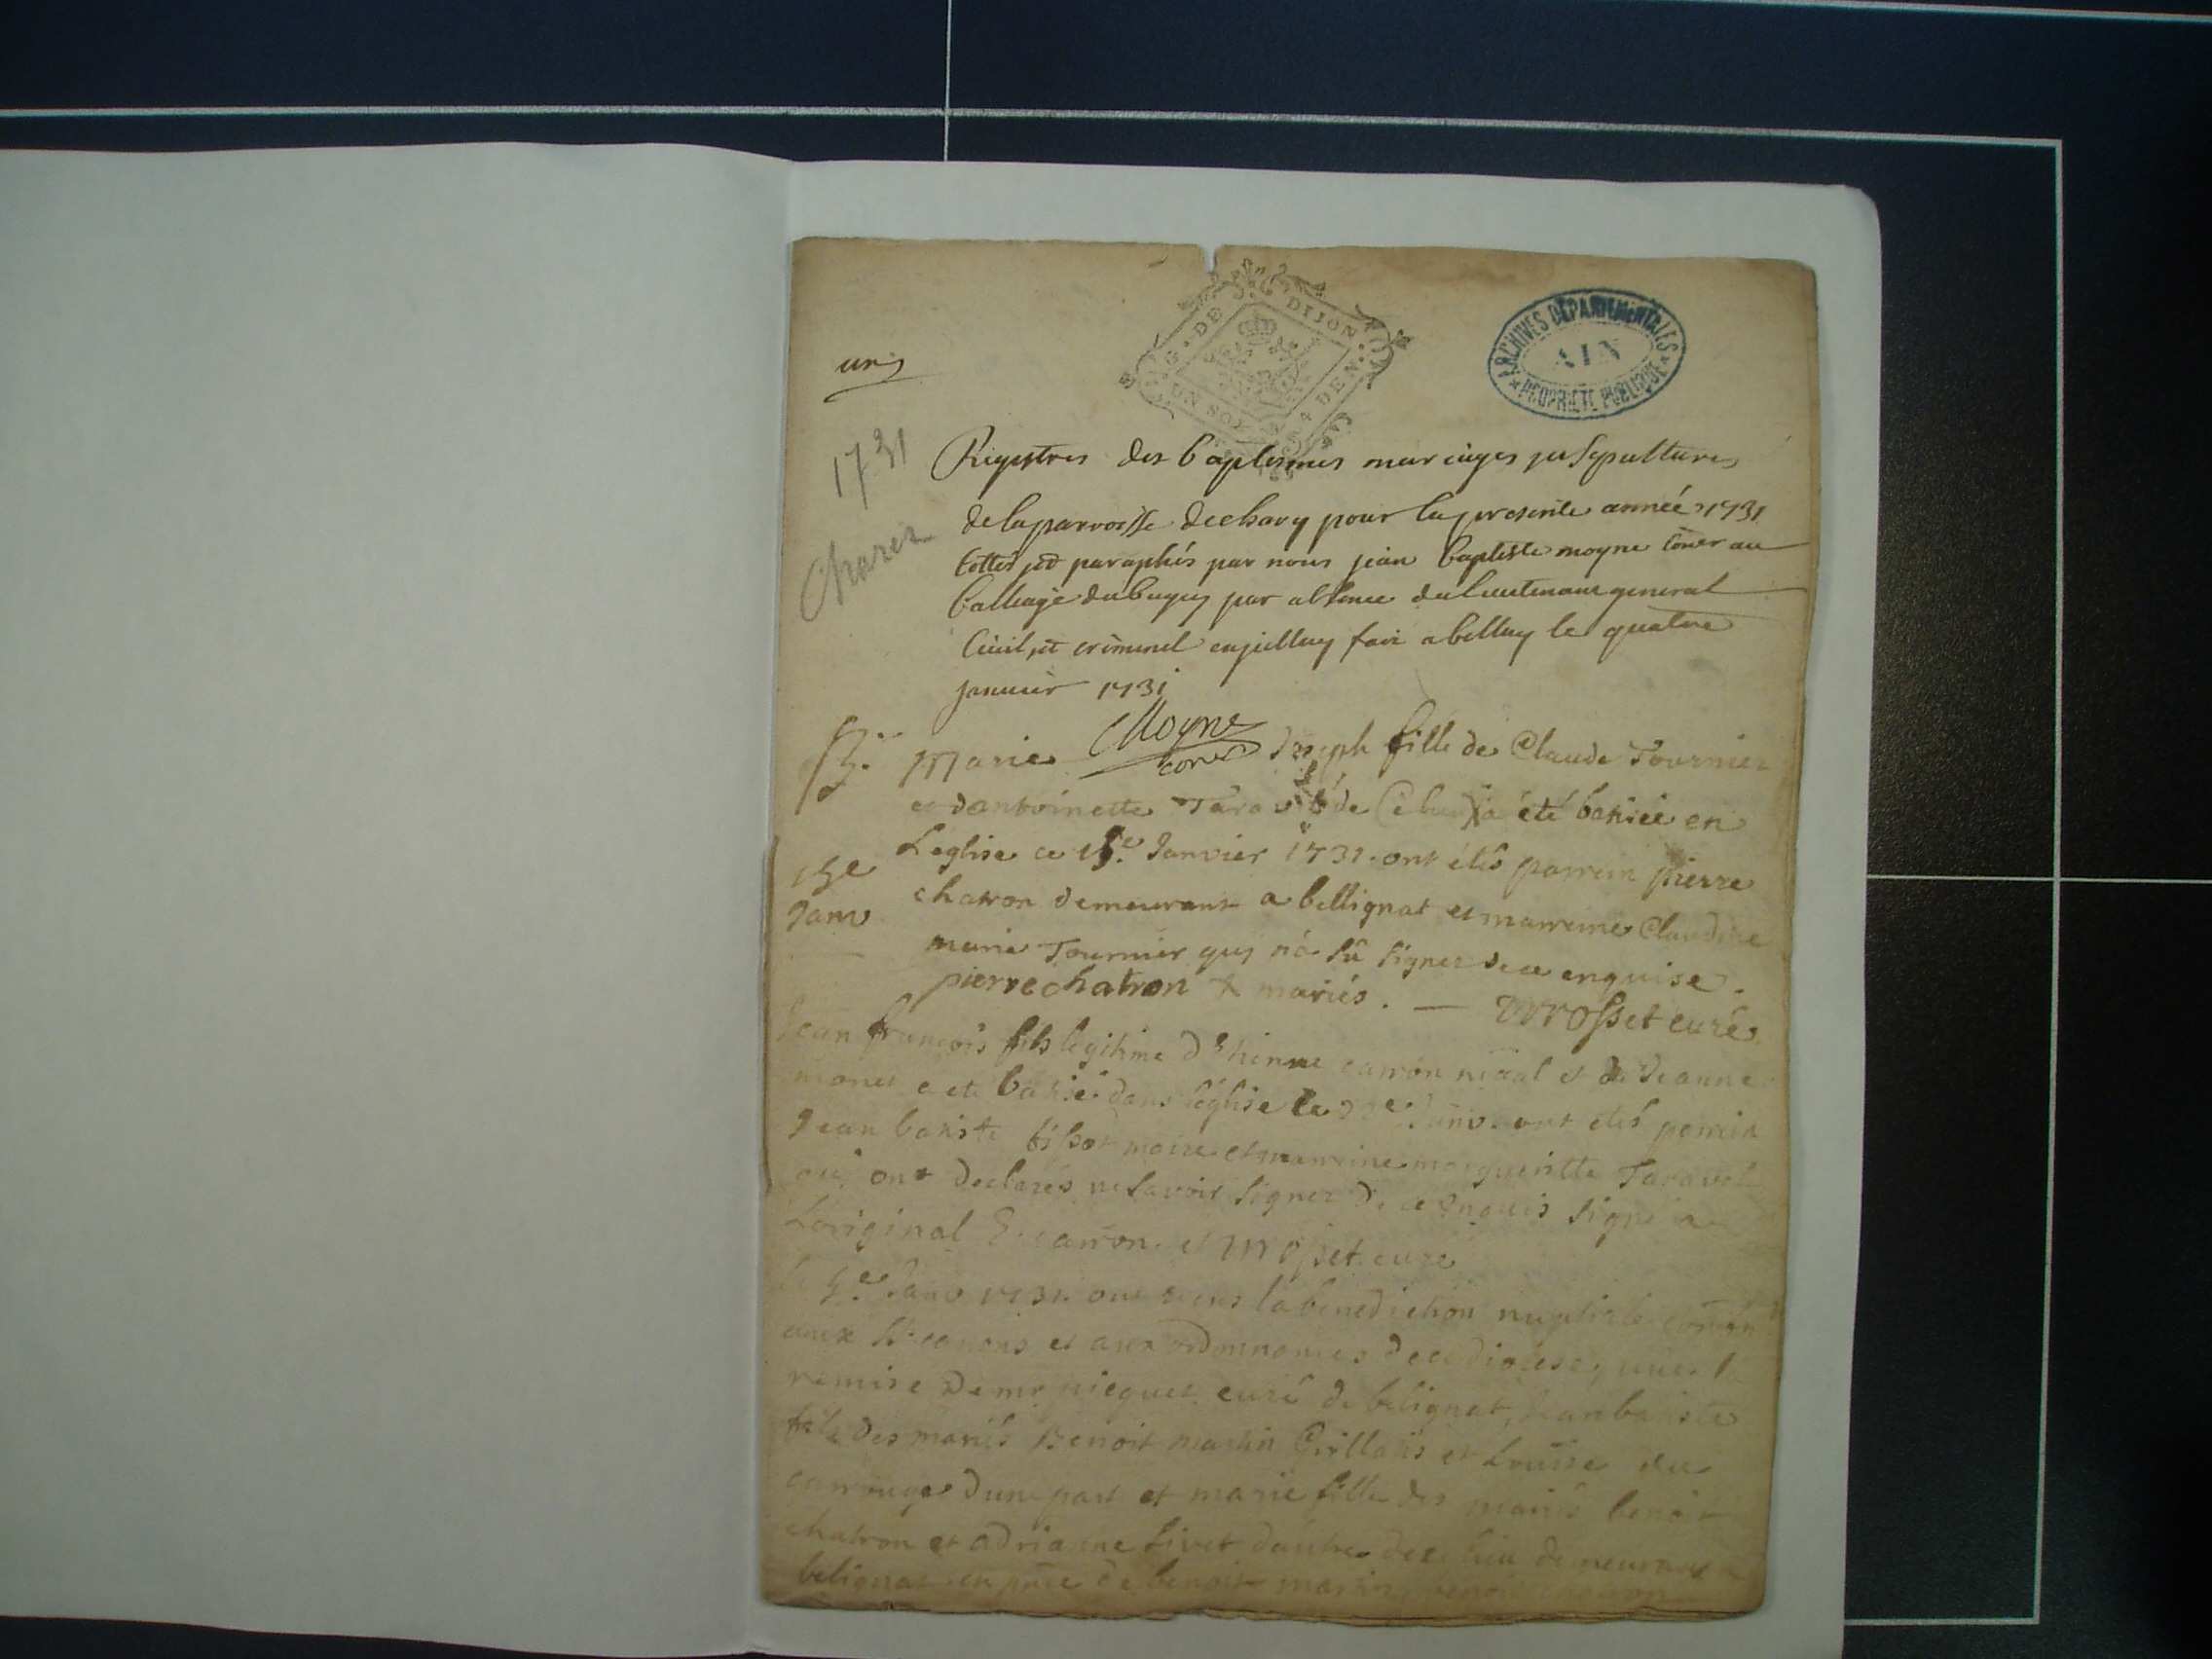 G. DE DIJON
UN SOL 4 DEN.
ARCHIVES DÉPARTEMENTALES
AIN
PROPRIÉTÉ PUBLIQUE
un
1731
Charix
Registres des baptesmes mariages et sepultures
de la parroisse de chary pour la presente année 1731
cottés et paraphés par nous jean baptiste moyne coner au
balliage du bugey par absence du lieutenant general
Civil, et criminel enjcelluy fait a belley le quatre
januier 1731
Moyne
coner
B.
Marie Joseph fille de Claude Tournier
et dantoinette Taravel de ce lieu a été batisée en
Leglise ce 15.e Janvier 1731. ont étés parrein pierre
15e
Janv
chatron demeurant a bellignat et marreine Claudine
marie Tournier quj n'a sû signer de ce enquise.
pierre chatron mariés. — rosset curé
Jean françois fils legitime d'Ethienne carron et de Jeanne
monet a eté batisé dans l'église le Janv. ont etés parrein
Jean batiste tissot et marreine margueritte Taravel
qui ont declarés ne savoir signer de ce enquis signé a
L'original E. carron. et rosset curé
le Janv 1731. ont receus la benediction nuptiale
aux Sts canons et aux ordonnances de ce diocese, veue l
remise de mr picquet curé de belignat, Jean batiste
fils des mariés Benoit martin et Louise du
carrouge dune part et marie fille des mariés benoit
chatron et adrianne livet dautre de ce lieu demeurant
belignat en pnce de benoit martin, benoit chatron